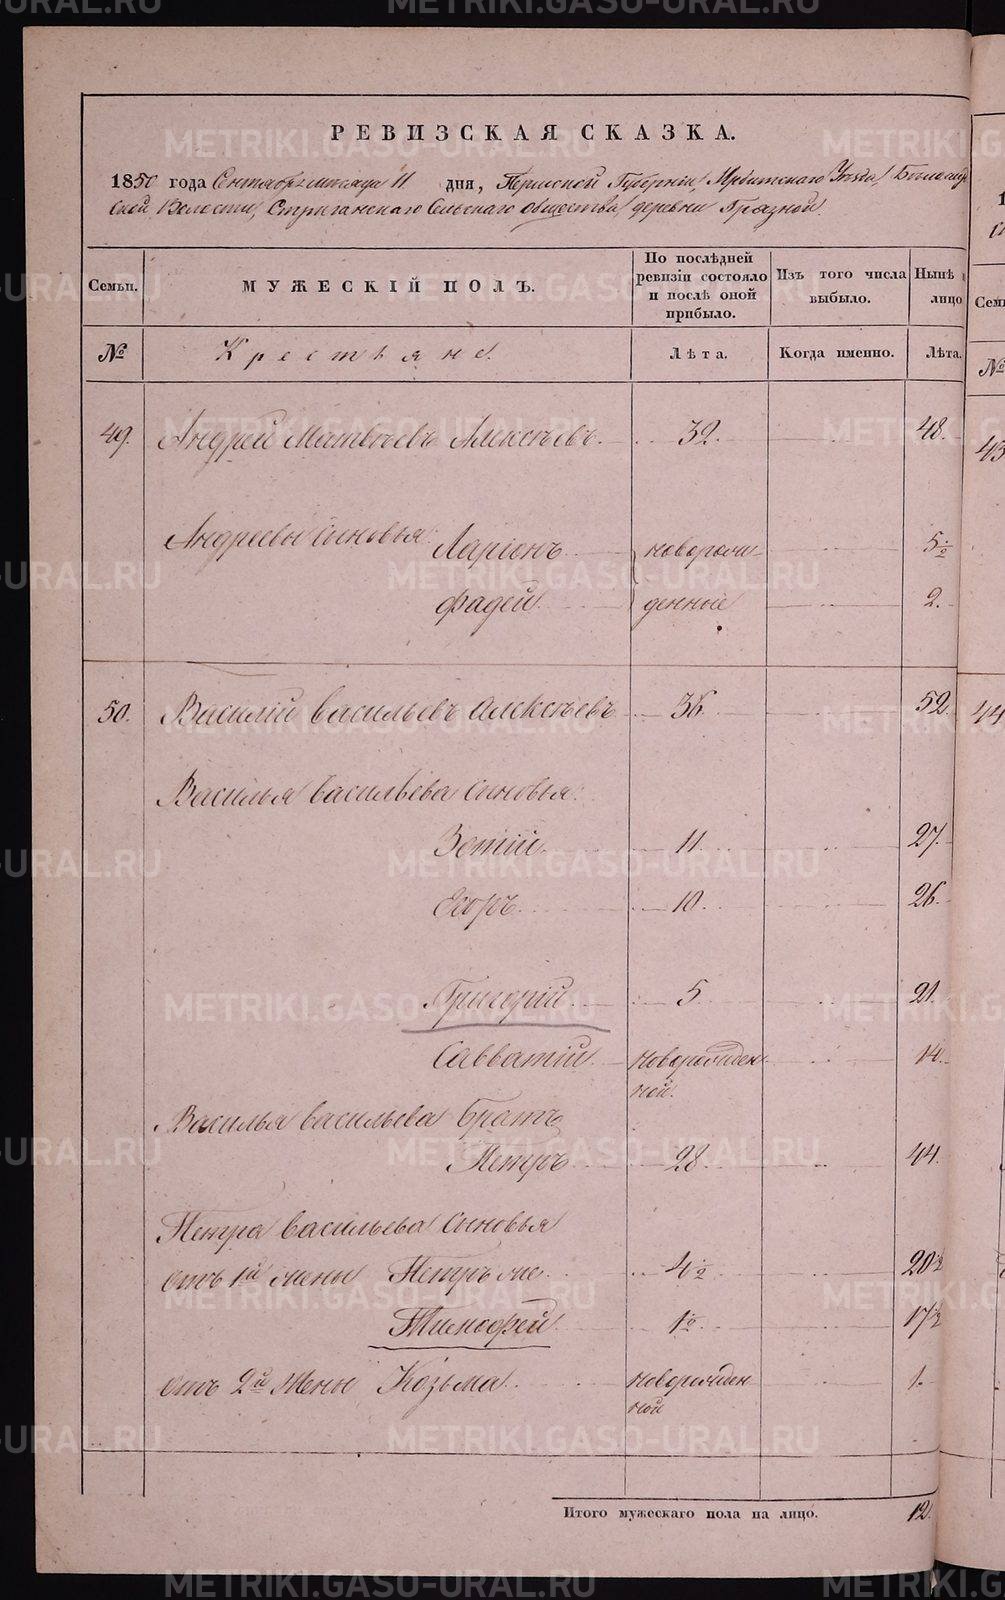 РЕВИЗСКАЯ СКАЗКА.
1850 года Сентября месяца 11 дня, Пермской Губернiи, Ирбитского Уезда,
ской Волости, Стриганскаго Сельскаго общества, деревни Грязной.
Семьи. МУЖЕСКIЙ ПОЛЪ. По послѣдней ревизiи состояло и послѣ оной прибыло. Изъ того числа выбыло. Нынѣ лицо
№ Крестьяне. Лѣта. Когда именно. Лѣта.
49. Андрей Матвѣевъ Алексѣевъ 32. 48.
Андреевы сыновья: Ларiонъ новорож- 5 ½
Фадей денные 2.
50. Василiй Васильевъ Алексѣевъ 36. 52.
Василья Васильева сыновья:
Зотiй 11. 27.
Егоръ 10. 26.
Григорiй 5 21.
Савватiй новорожден 14.
ной.
Василья Васильева братъ
Петръ 28. 44.
Петра Васильева сыновья
отъ 1й жены Петръ же 4 ½ 20 ½
Тимофей 1 ½ 17 ½
отъ 2й жены Козьма новорожден 1.
ной
Итого мужескаго пола на лицо. 12.
METRIKI.GASO-URAL.RU